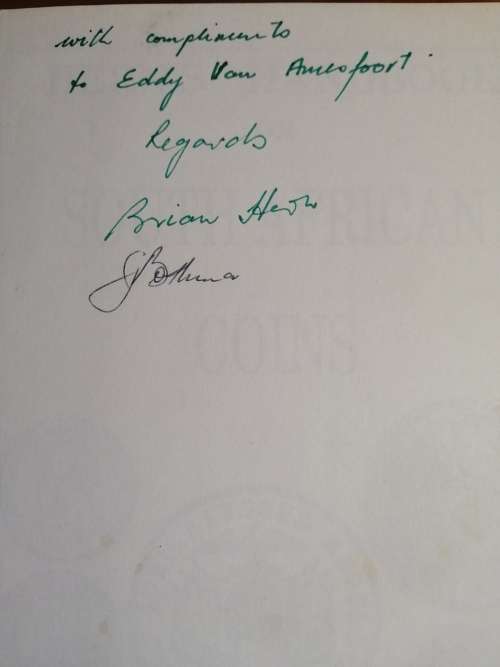 with compliments
to Eddy Van Amersfoort.
Regards
Brian Hern
G Bothma
SOUTH AFRICAN
COINS